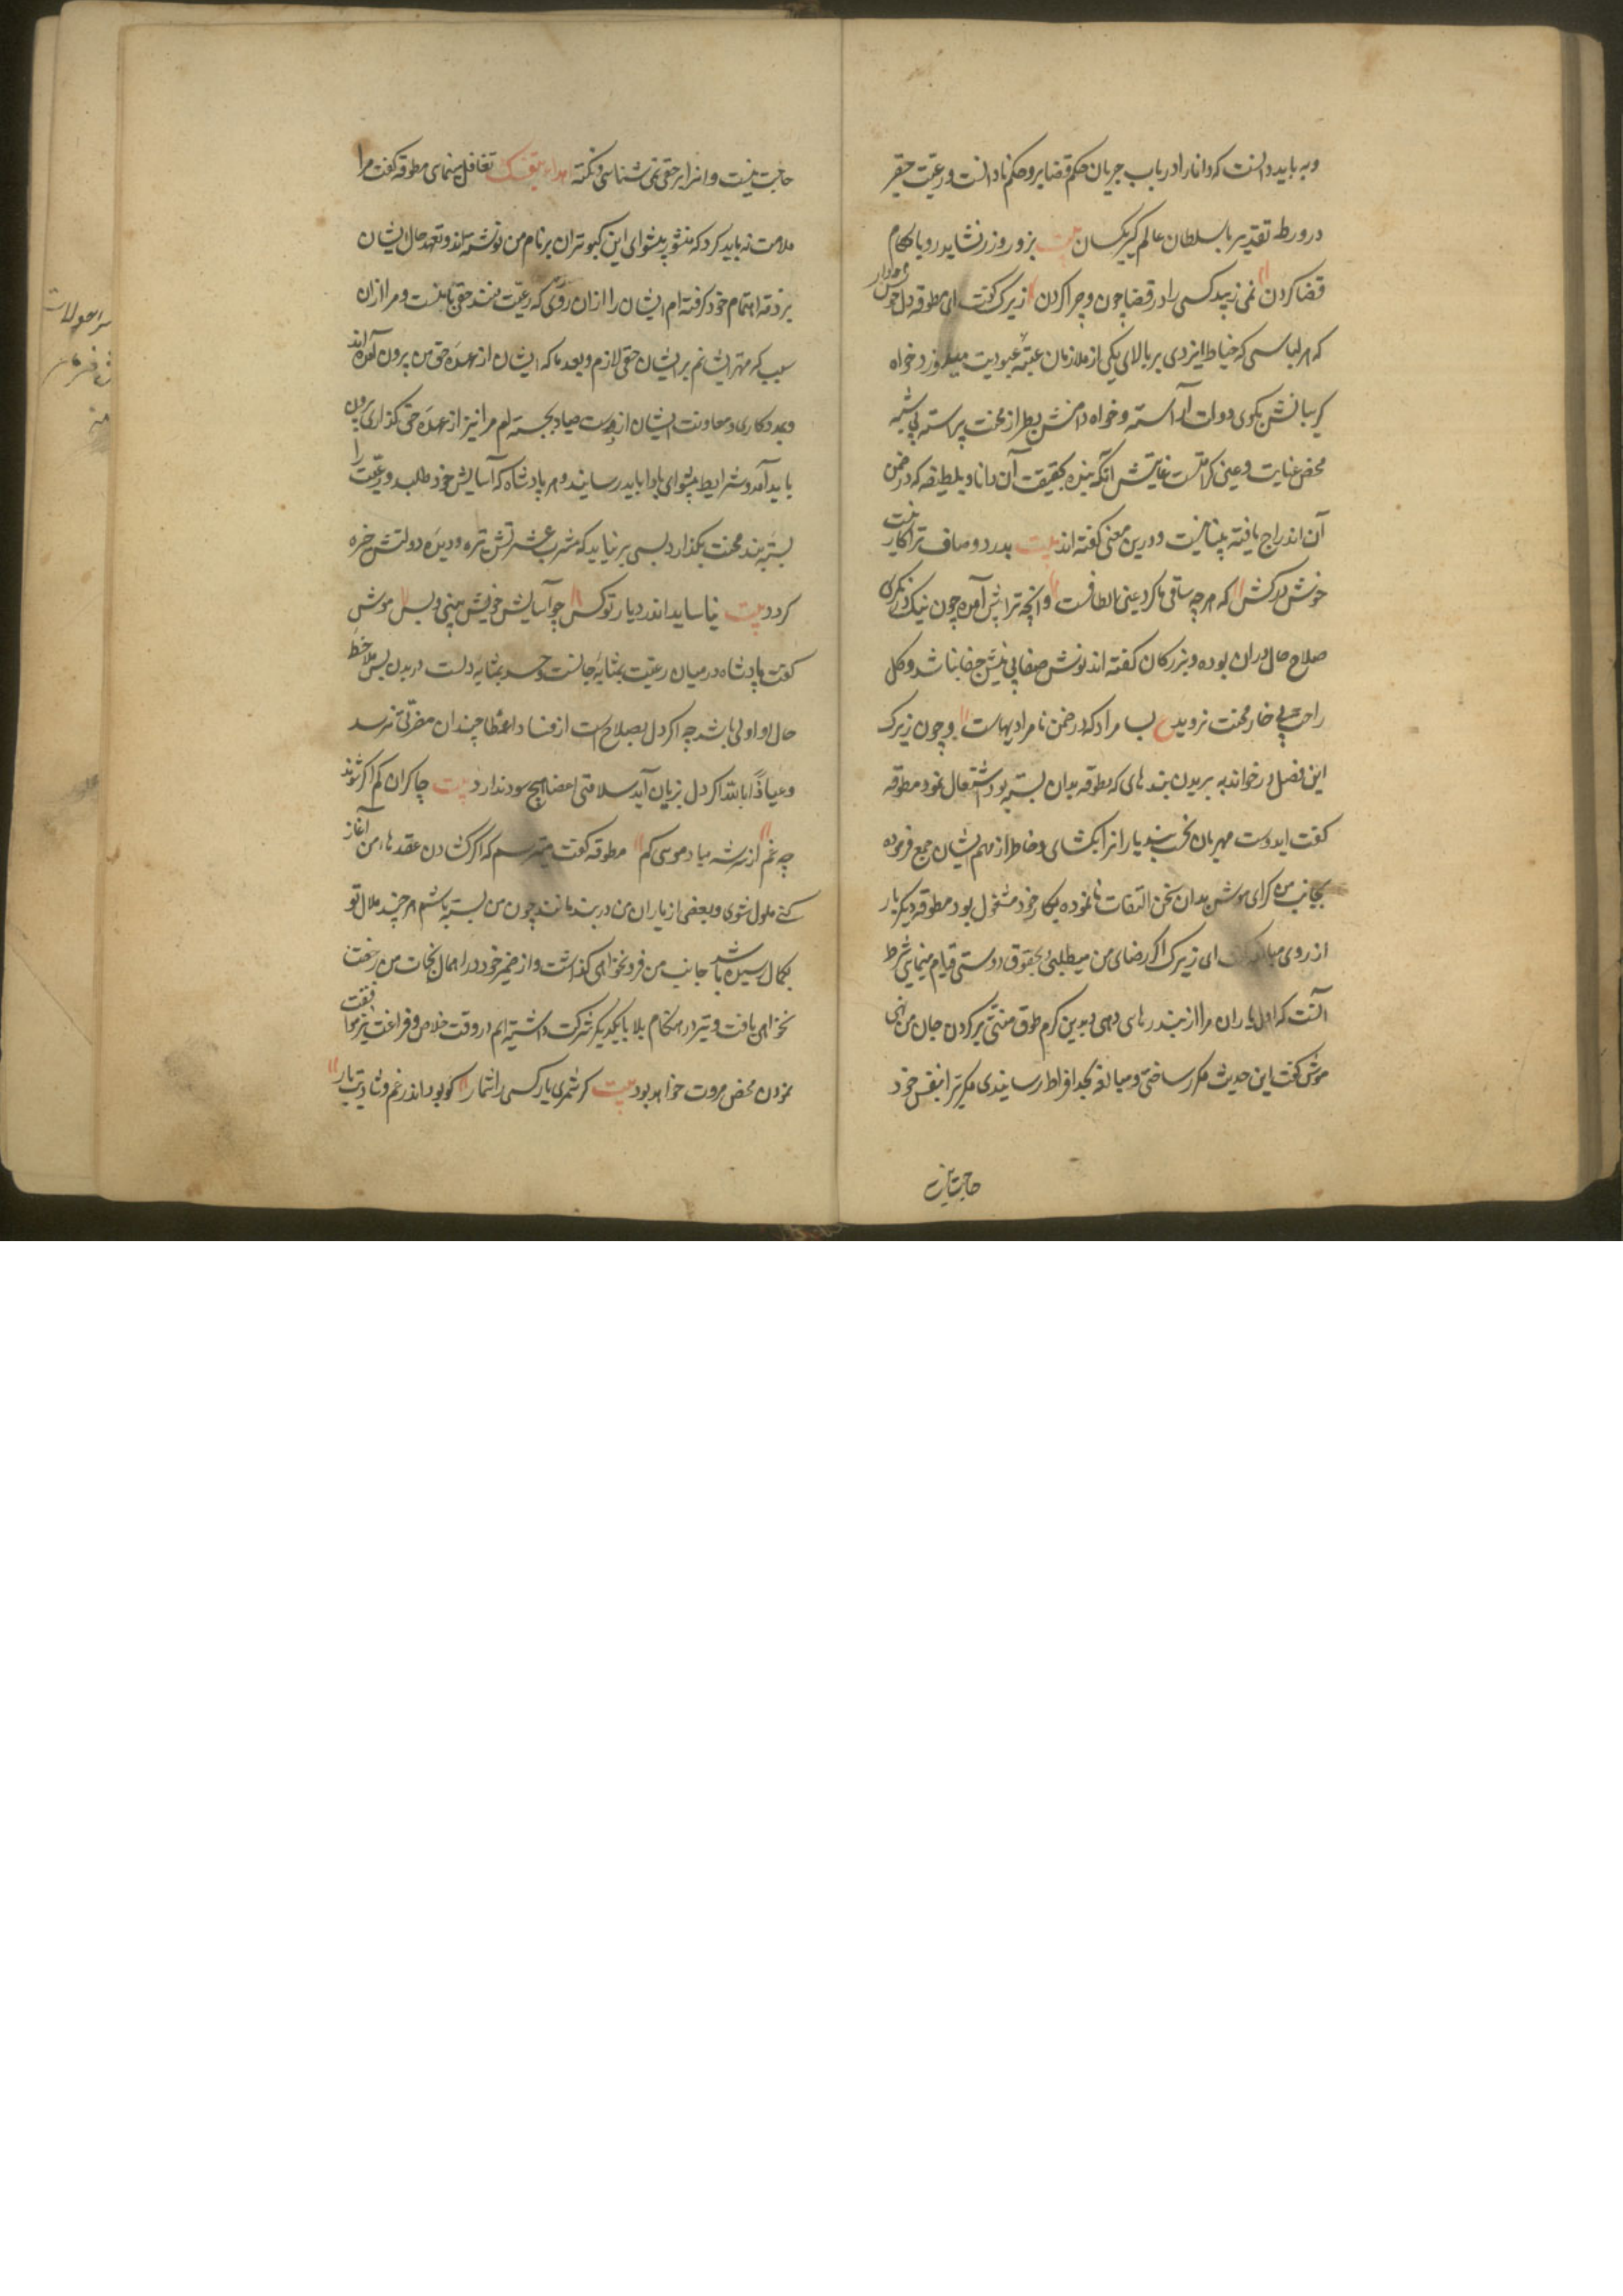 وبباید دانست که دانا را در باب جریان حکم قضا پرو حکم نادانست و رعیت حقیر
در ورطه تقدیر با سلطان عالم گیر یکسان بیت بزور و زر نشاید رو با حکام
قضا کردن نمی زیبد کسی را در قضا چون و چرا کردن زیرک گفت ای مطوقه دل خوش دار
که هر لباسی که خیاط ایزدی بر بالای یکی از ملازمان عتبه عبودیت میدوزد خواه
گریبانش بگوی دولت آراسته و خواه دامنش بطراز محنت پیراسته بی شبه
محض عنایت و عین کرامتست غایتش آنکه بنده بحقیقت آن دانا و بلطیفه که در ضمن
آن اندراج یافته بینا نیست و درین معنی گفته اند بیت بدرد و صاف ترا کار نیست
خوش درکش که هرچه ساقی ما کرد عین الطافست و آنچه ترا پیش آمده چون نیک درنگری
صلاح حال در آن بوده و بزرگان گفته اند نوش صفا بی نیش جفا نباشد و گل
راحت بی خار محنت نروید ع بسا مراد که در ضمن نامرادیهاست و چون زیرک
این فصل در خواند به بریدن بندهای که مطوقه بدان بسته بود اشتغال نمود مطوقه
گفت ایدوست مهربان نخست بند یاران را بکشای و خاطر از مهم ایشان جمع فرموده
بجانب من گرای موش بدان سخن التفات نانموده بکار خود مشغول بود مطوقه دیگر بار
از روی مبالغه گفت ای زیرک اگر رضای من میطلبی و بحقوق دوستی قیام مینمایی شرط
آنست که اول یاران مرا از بند رهایی دهی و بدین کرم طوق منتی بر گردن جان من نهی
موش گفت این حدیث مکرر ساختی و مبالغه بحد افراط رسانیدی مگر ترا بنفس خود
حاجت نیست
حاجت نیست و او را بر حقی نمی شناسی و نکته ابداء بنفسک تغافل مینمای مطوقه گفت مرا
ملامت نه باید کرد که منشور پیشوای این کبوتران بر نام من نوشته اند و تعهد حال ایشان
بر ذمه اهتمام خود گرفته ام ایشان را از آن روی که رعیت منند حقی ثابتست و مرا از آن
سبب که مهتر ایشانم بر ایشان حقی لازم و بعد ما که ایشان از عهده حق من برون آمده اند
و بمددکاری و معاونت ایشان از دست صیاد بجسته ام مرا نیز از عهده حق گذاری برون
باید آمد و شرایط پیشوای بادا باید رسانید و هر پادشاه که آسایش خود طلبد و رعیت را
بسته بند محنت بگذارد بسی بر نیاید که مشرب عشرتش تیره و دیده دولتش خیره
گردد بیت نیاساید اندر دیار تو کس چو آسایش خویش بینی و بس موش
گفت پادشاه در میان رعیت بمثابه جانست در جسد و بمثابه دلست در بدن پس ملاحظه
حال او اولی باشد چه اگر دل بصلاح است از فساد اعضا چندان مضرتی نرسد
و عیاذا بالله اگر دل بزیان آید سلامتی اعضا هیچ سود ندارد بیت چاکران کم اگر شوند
چه غم از سر شه مباد موسی کم مطوقه گفت میترسم که اگر کشادن عقدهاء من آغاز
کنی ملول شوی و بعضی از یاران من در بند مانند چون من بسته باشم هر چند ملال تو
بکمال رسیده باشد جانب من فرو نخواهی گذاشت و از ضمیر خود در اهمال نجات من رخصت
نخواهی یافت و نیز در هنگام بلا با یکدیگر شرکت داشته ایم در وقت خلاص و فراغت نیز موافقت
نمودن محض مروت خواهد بود بیت گر شمری یار کسی را شمار کو بود اندر غم و شادیت یار